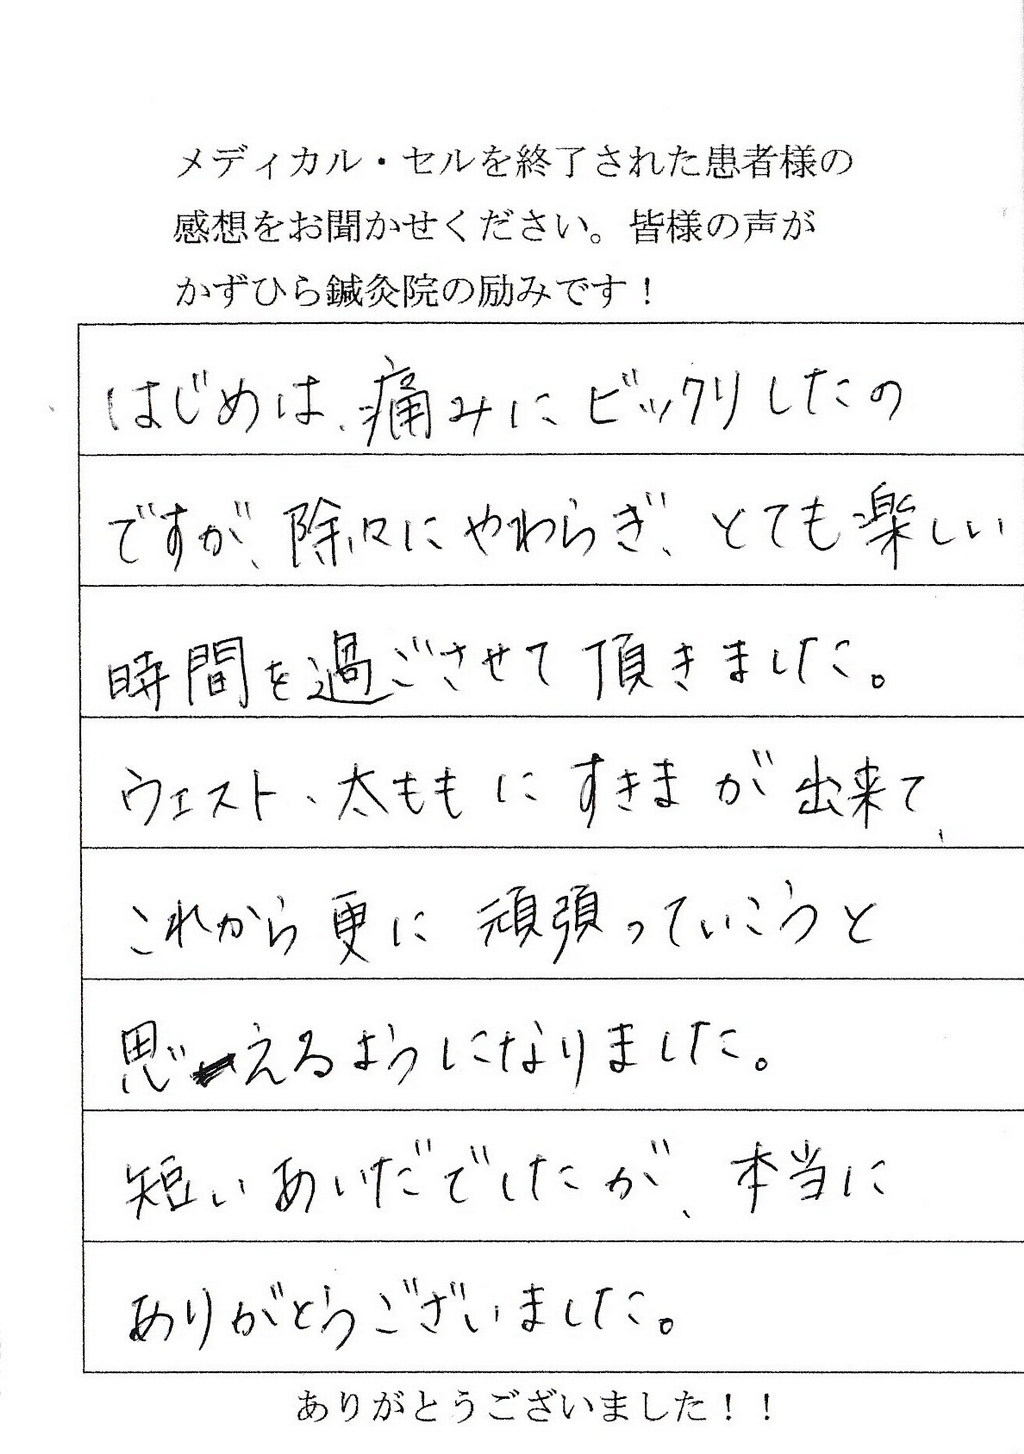 メディカル・セルを終了された患者様の
感想をお聞かせください。皆様の声が
かずひら鍼灸院の励みです！
はじめは、痛みにビックリしたの
ですが、除々にやわらぎ、とても楽しい
時間を過ごさせて頂きました。
ウェスト、太ももにすきまが出来て、
これから更に頑張っていこうと
思えるようになりました。
短いあいだでしたが、本当に
ありがとうございました。
ありがとうございました！！